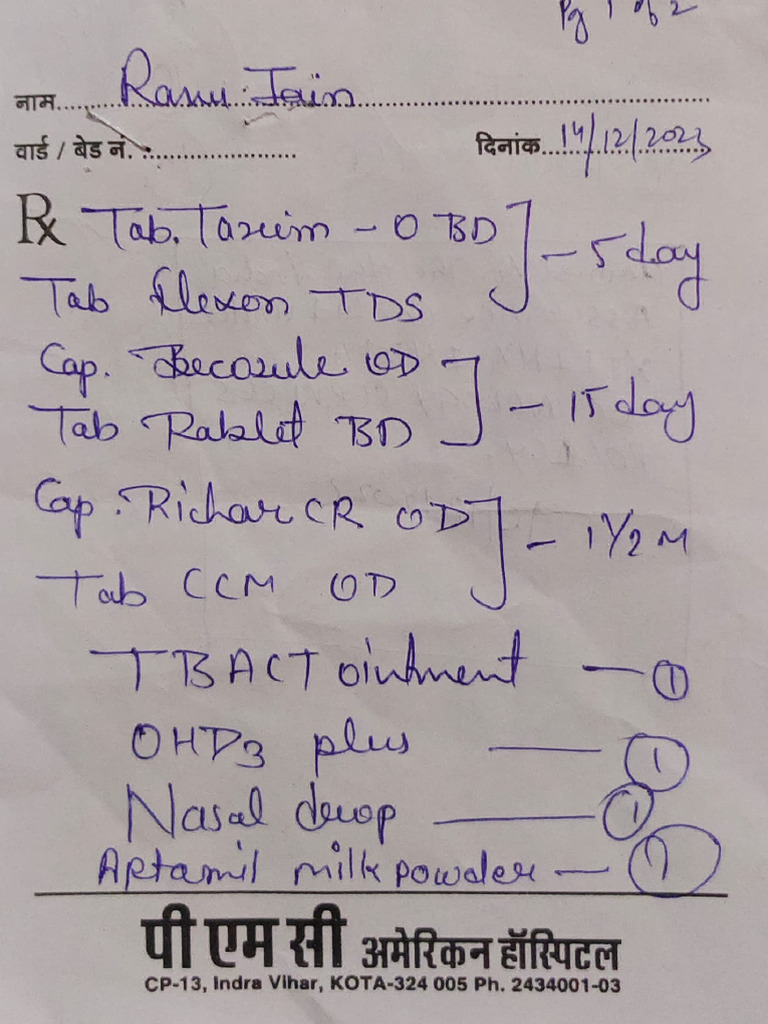 Pg 1 of 2
नाम..... Ranu Jain
वार्ड / बेड नं. :..................... दिनांक... 14/12/2023
Rx Tab. Taxim - O BD
Tab Flexon TDS ] - 5 day
Cap. Becosule OD
Tab Rablet BD ] - 15 day
Cap. Richar CR OD
Tab CCM OD ] - 1 1/2 M
TBACT ointment — ①
OHD3 plus — ①
Nasal drop — ①
Aptamil milk powder — ①
पी एम सी अमेरिकन हॉस्पिटल
CP-13, Indra Vihar, KOTA-324 005 Ph. 2434001-03